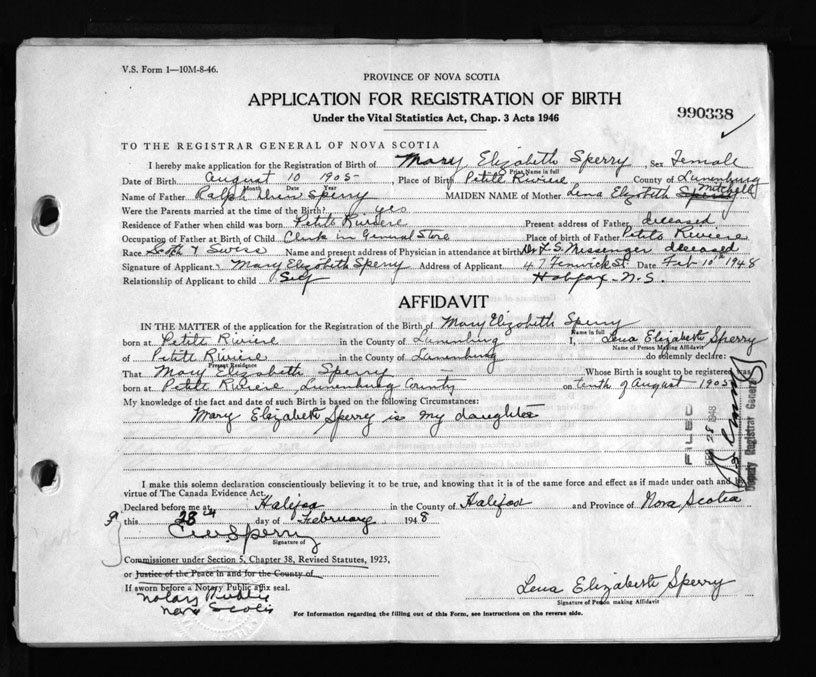 V.S. Form 1—10M-8-46.
PROVINCE OF NOVA SCOTIA
APPLICATION FOR REGISTRATION OF BIRTH
990338
Under the Vital Statistics Act, Chap. 3 Acts 1946
TO THE REGISTRAR GENERAL OF NOVA SCOTIA
I hereby make application for the Registration of Birth of Mary Elizabeth Sperry, Sex Female
Print Name in full
Date of Birth August 10 1905, Place of Birth Petite Riviere County of Lunenburg
Month Date Year
Mitchell
Name of Father Ralph Sperry MAIDEN NAME of Mother Lena Elizabeth Sperry
Were the Parents married at the time of the Birth? yes
Residence of Father when child was born Petite Riviere Present address of Father deceased
Occupation of Father at Birth of Child Clerk in General Store Place of birth of Father Petite Riviere
Race Scotch & Swiss Name and present address of Physician in attendance at birth Dr. L. S. Messenger deceased
Signature of Applicant Mary Elizabeth Sperry Address of Applicant 47 Fenwick St. Date Feb 10th 1948
Relationship of Applicant to child Self Halifax - N.S.
AFFIDAVIT
IN THE MATTER of the application for the Registration of the Birth of Mary Elizabeth Sperry
Name in full
born at Petite Riviere in the County of Lunenburg I, Lena Elizabeth Sperry
Name of Person Making Affidavit
of Petite Riviere in the County of Lunenburg do solemnly declare:
Present Residence
That Mary Elizabeth Sperry Whose Birth is sought to be registered was
born at Petite Riviere, Lunenburg County on tenth of August 1905
My knowledge of the fact and date of such Birth is based on the following Circumstances:
Mary Elizabeth Sperry is my daughter
FILED
FEB 28 1948
Deputy Registrar General
I make this solemn declaration conscientiously believing it to be true, and knowing that it is of the same force and effect as if made under oath and by
virtue of The Canada Evidence Act.
Declared before me at Halifax in the County of Halifax and Province of Nova Scotia
this 28th day of February 1948
C.W. Sperry
Signature of
Commissioner under Section 5, Chapter 38, Revised Statutes, 1923,
or Justice of the Peace in and for the County of
If sworn before a Notary Public affix seal.
Notary Public
Nova Scotia
Lena Elizabeth Sperry
Signature of Person making Affidavit
For Information regarding the filling out of this Form, see instructions on the reverse side.